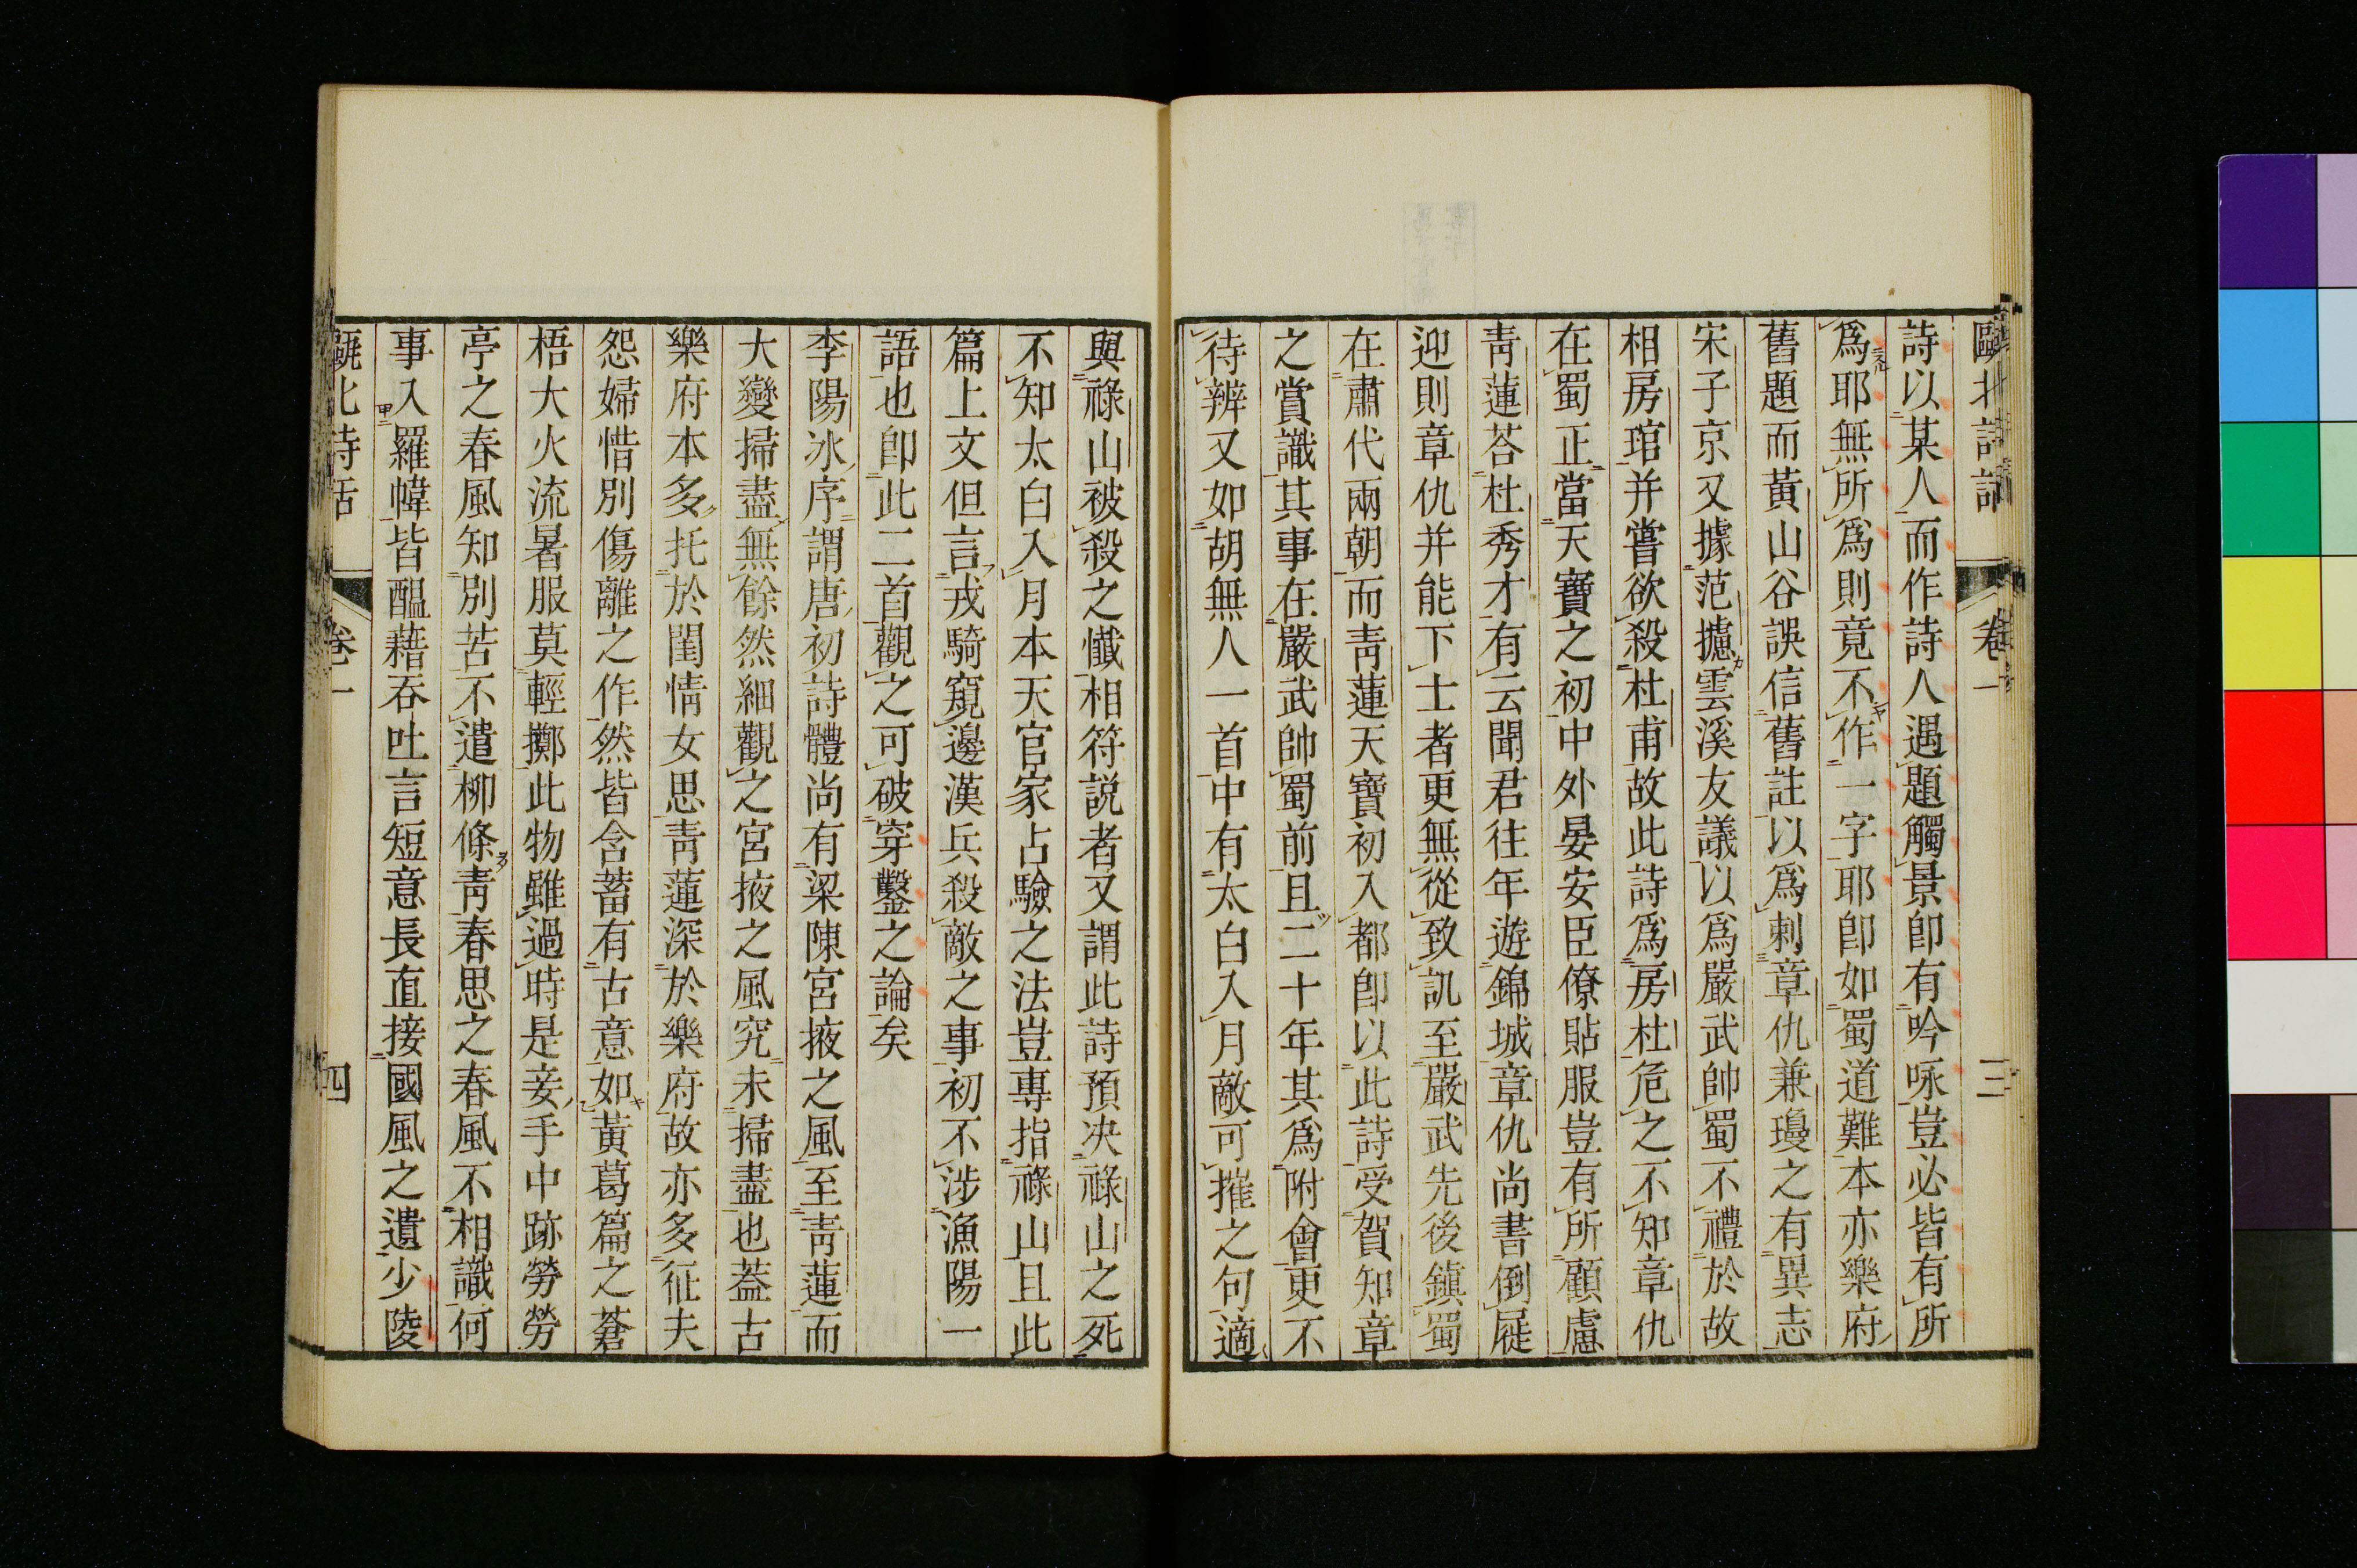 甌北詩話 卷一 三
詩以某人而作詩人遇題觸景卽有吟咏豈必皆有所
爲耶無所爲則竟不作一字耶卽如蜀道難本亦樂府
舊題而黃山谷誤信舊註以爲刺章仇兼瓊之有異志
宋子京又據范攄雲溪友議以爲嚴武帥蜀不禮於故
相房琯并嘗欲殺杜甫故此詩爲房杜危之不知章仇
在蜀正當天寶之初中外晏安臣僚貼服豈有所顧慮
靑蓮荅杜秀才有云聞君往年遊錦城章仇尚書倒屣
迎則章仇并能下士者更無從致訊至嚴武先後鎭蜀
在肅代兩朝而靑蓮天寶初入都卽以此詩受賀知章
之賞識其事在嚴武帥蜀前且二十年其爲附會更不
待辨又如胡無人一首中有太白入月敵可摧之句適
與祿山被殺之懴相符説者又謂此詩預决祿山之死
不知太白入月本天官家占驗之法豈專指祿山且此
篇上文但言戎騎窺邊漢兵殺敵之事初不涉漁陽一
語也卽此二首觀之可破穿鑿之論矣
李陽冰序謂唐初詩體尚有梁陳宮掖之風至靑蓮而
大變掃盡無餘然細觀之宮掖之風究未掃盡也葢古
樂府本多托於閨情女思靑蓮深於樂府故亦多征夫
怨婦惜別傷離之作然皆含蓄有古意如黃葛篇之蒼
梧大火流暑服莫輕擲此物雖過時是妾手中跡勞勞
亭之春風知別苦不遣柳條靑春思之春風不相識何
事入羅幃皆醞藉吞吐言短意長直接國風之遺少陵
甌北詩話 卷一 四